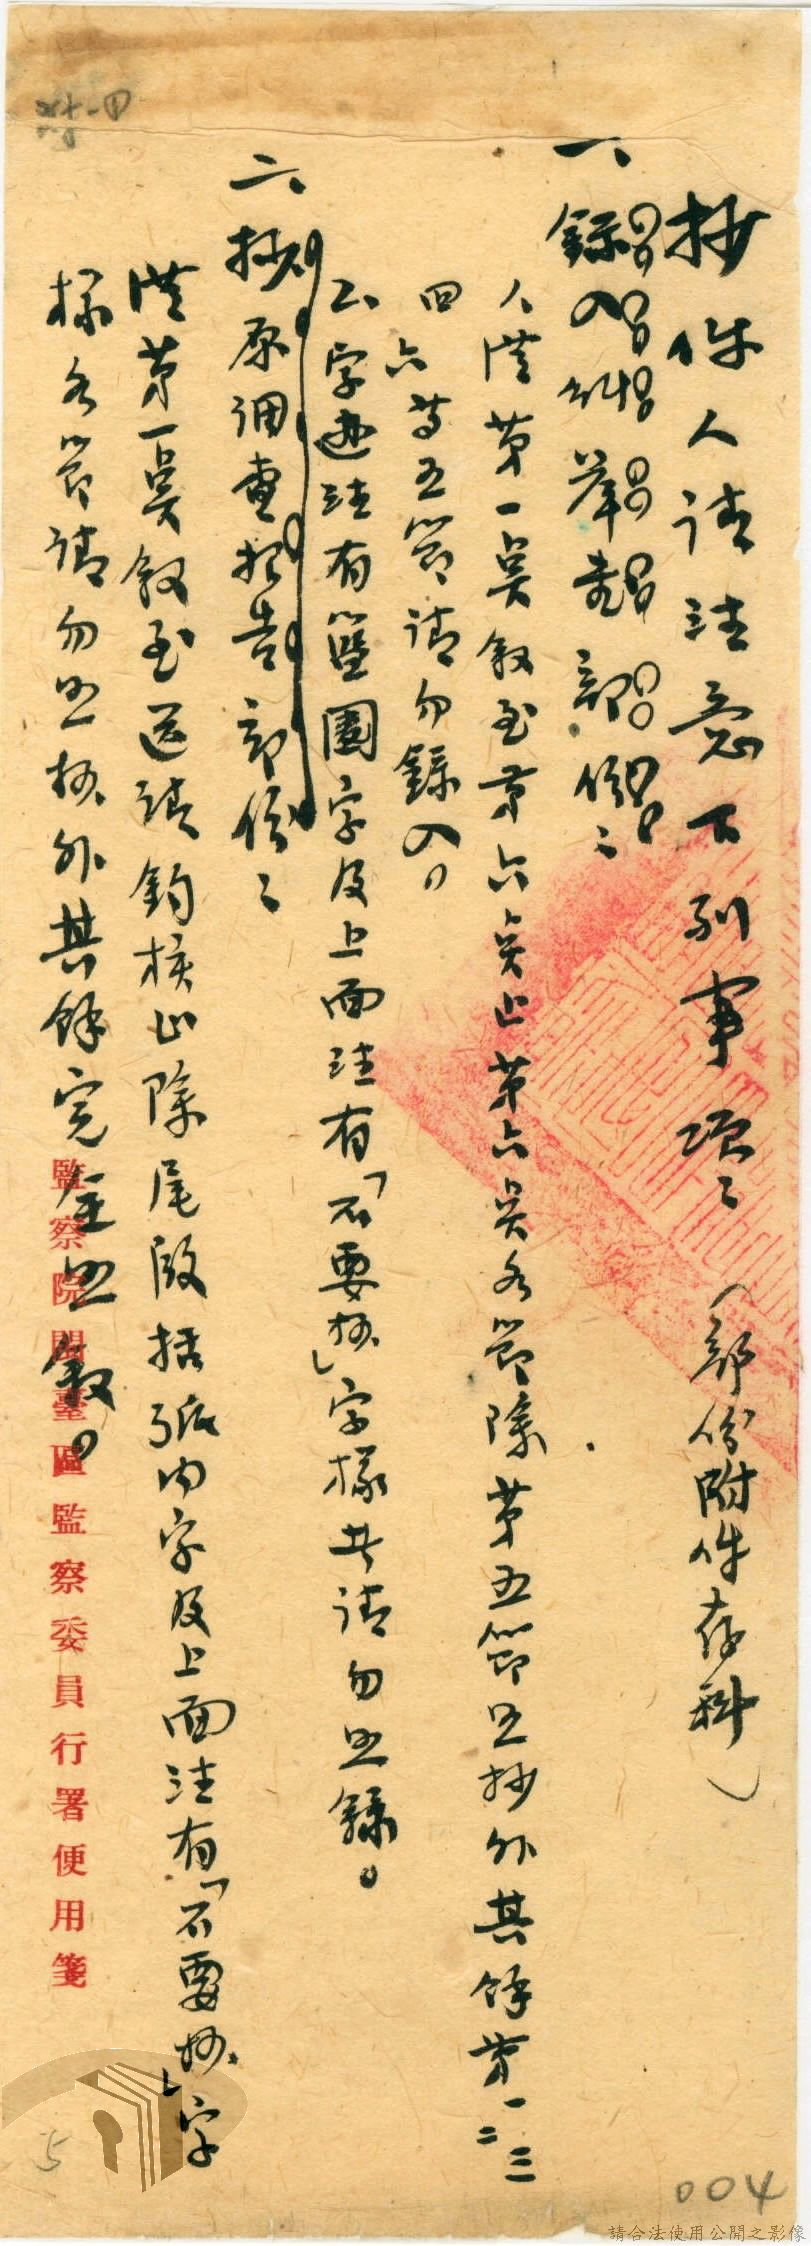 抄件人請注意下列事項：（部份附件存科）
一、錄入糾舉書部份：
1.從第一点叙至第六点止第六点各節除第五節照抄外其餘第一二三
四六等五節請勿錄入。
2.字迹註有籃圈字及上面註有「不要抄」字樣者請勿照錄。
二、抄原調查報告部份：
從第一点叙至送請鈞核止除尾段括弧内字及上面註有「不要抄」字
樣各節請勿照抄外其餘完全照叙。
監察院閩臺區監察委員行署便用箋
5
004
請合法使用公開之影像